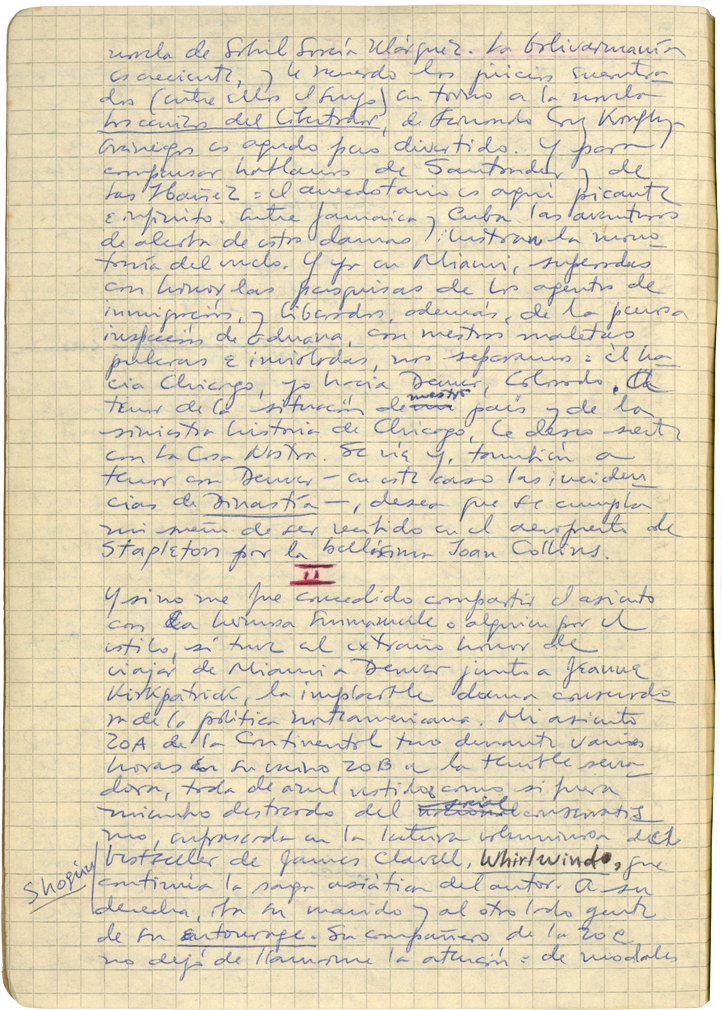 novela de Gabriel García Márquez. La bolivarmanía
es creciente, y le recuerdo los juicios encontra
dos (entre ellos el suyo) en torno a la novela
Las cenizas del Libertador, de Fernando Cruz Kronfly.
es agudo pero divertido. Y para
compensar hablamos de Santander y de
las Ibáñez = el anecdotario es aquí picante
e infinito. Entre Jamaica y Cuba las aventuras
de alcoba de estas damas ilustran la mono
tonía del vuelo. Y ya en Miami, superadas
con honor las pesquisas de los agentes de
inmigración, y liberados, además, de la
inspección de aduana, con nuestras maletas
pulcras e invioladas, nos separamos = él ha
cia Chicago, yo hacia Denver, Colorado. A
tenor de la situación de nuestro país y de la
siniestra historia de Chicago, le deseo suerte
con La Cosa Nostra. Se ríe y, también a
tenor con Denver – en este caso las inciden
cias de Dinastía –, desea que se cumpla
mi sueño de ser recibido en el aeropuerto de
Stapleton por la bellísima Joan Collins.
II
Y si no me fue concedido compartir el asiento
con la hermosa Emmanuelle o alguien por el
estilo, sí tuve el extraño honor de
viajar de Miami a Denver junto a Jeanne
Kirkpatrick, la implacable dama conservado
ra de la política norteamericana. Mi asiento
20A de la Continental tuvo durante varias
horas su vecino 20B a la temible sena
dora, toda de azul vestida como si fuera
miembro destacado del social conservatis
mo, enfrascada en la lectura voluminosa del
bestseller de James Clavell, Whirlwind, que
Shogún
continúa la saga asiática del autor. A su
derecha, iba su marido y al otro lado gente
de su entourage. Su compañero de la 20C
no dejó de llamarme la atención = de modales